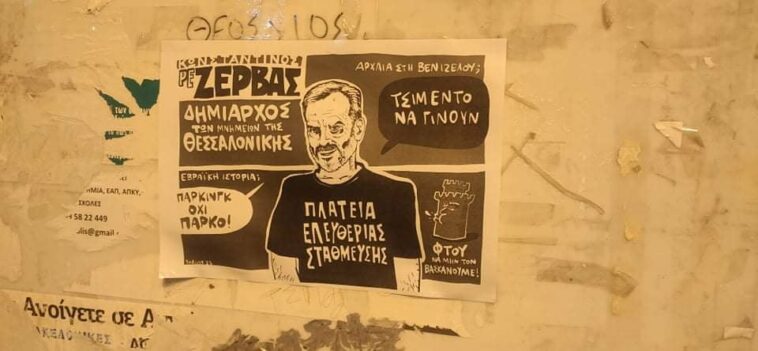 ΘΕΟΣ
ΚΩΝΣΤΑΝΤΙΝΟΣ
ΡΕ ΖΕΡΒΑΣ
ΔΗΜΙΑΡΧΟΣ
ΤΩΝ ΜΝΗΜΕΙΩΝ ΤΗΣ
ΘΕΣΣΑΛΟΝΙΚΗΣ
ΑΡΧΑΙΑ ΣΤΗ ΒΕΝΙΖΕΛΟΥ;
ΤΣΙΜΕΝΤΟ
ΝΑ ΓΙΝΟΥΝ
ΕΒΡΑΪΚΗ ΙΣΤΟΡΙΑ;
ΠΑΡΚΙΝΓΚ
ΟΧΙ
ΠΑΡΚΟ!
ΠΛΑΤΕΙΑ
ΕΛΕΥΘΕΡΙΑΣ
ΣΤΑΘΜΕΥΣΗΣ
ΦΤΟΥ
ΝΑ ΜΗΝ ΤΟΝ
ΒΑΣΚΑΝΟΥΜΕ!
ΜΙΑ, ΕΑΠ, ΑΠΚΥ,
ΣΧΟΛΕΣ
58 22 449
lis@gmail
Ανοίγετε σε